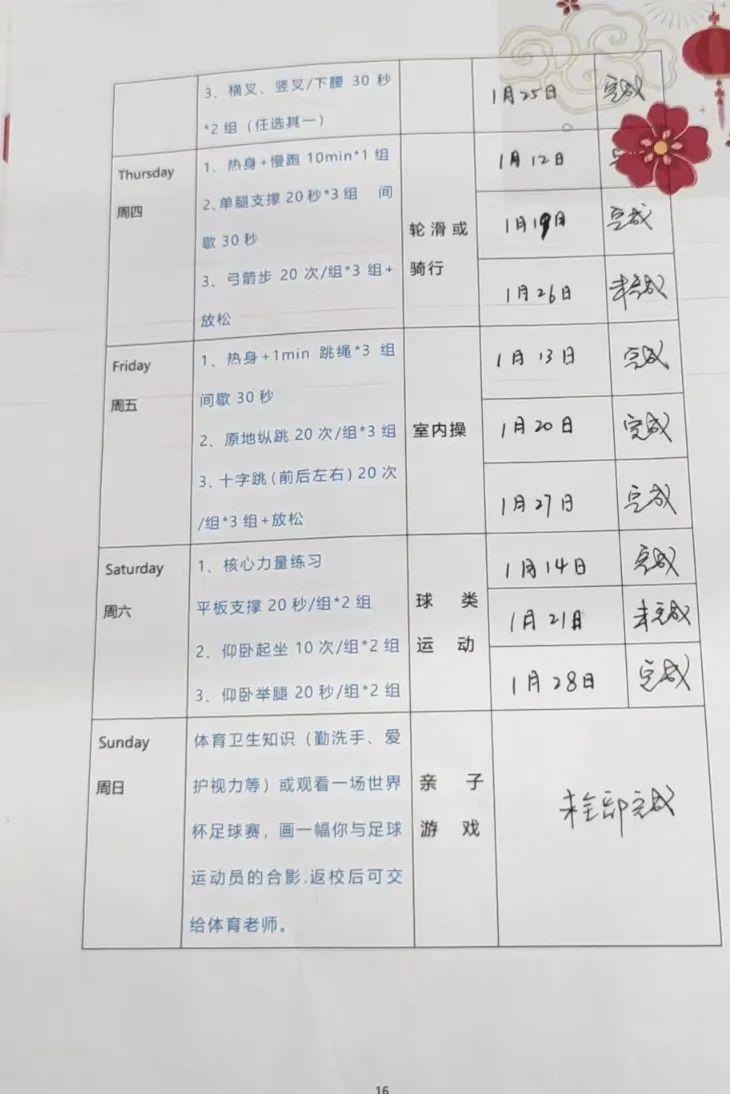 3、横叉、竖叉/下腰 30 秒
*2 组（任选其一）
1月25日
完成
Thursday
周四
1、热身+慢跑 10min*1 组
2、单腿支撑 20 秒*3 组 间
歇 30 秒
3、弓箭步 20 次/组*3 组+
放松
轮滑或
骑行
1月12日
1月19日
完成
1月26日
未完成
Friday
周五
1、热身+1min 跳绳*3 组
间歇 30 秒
2、原地纵跳 20 次/组*3 组
3、十字跳（前后左右）20 次
/组*3 组+放松
室内操
1月13日
完成
1月20日
完成
1月27日
完成
Saturday
周六
1、核心力量练习
平板支撑 20 秒/组*2 组
2、仰卧起坐 10 次/组*2 组
3、仰卧举腿 20 秒/组*2 组
球 类
运 动
1月14日
完成
1月21日
未完成
1月28日
完成
Sunday
周日
体育卫生知识（勤洗手、爱
护视力等）或观看一场世界
杯足球赛，画一幅你与足球
运动员的合影.返校后可交
给体育老师。
亲 子
游 戏
未全部完成
16